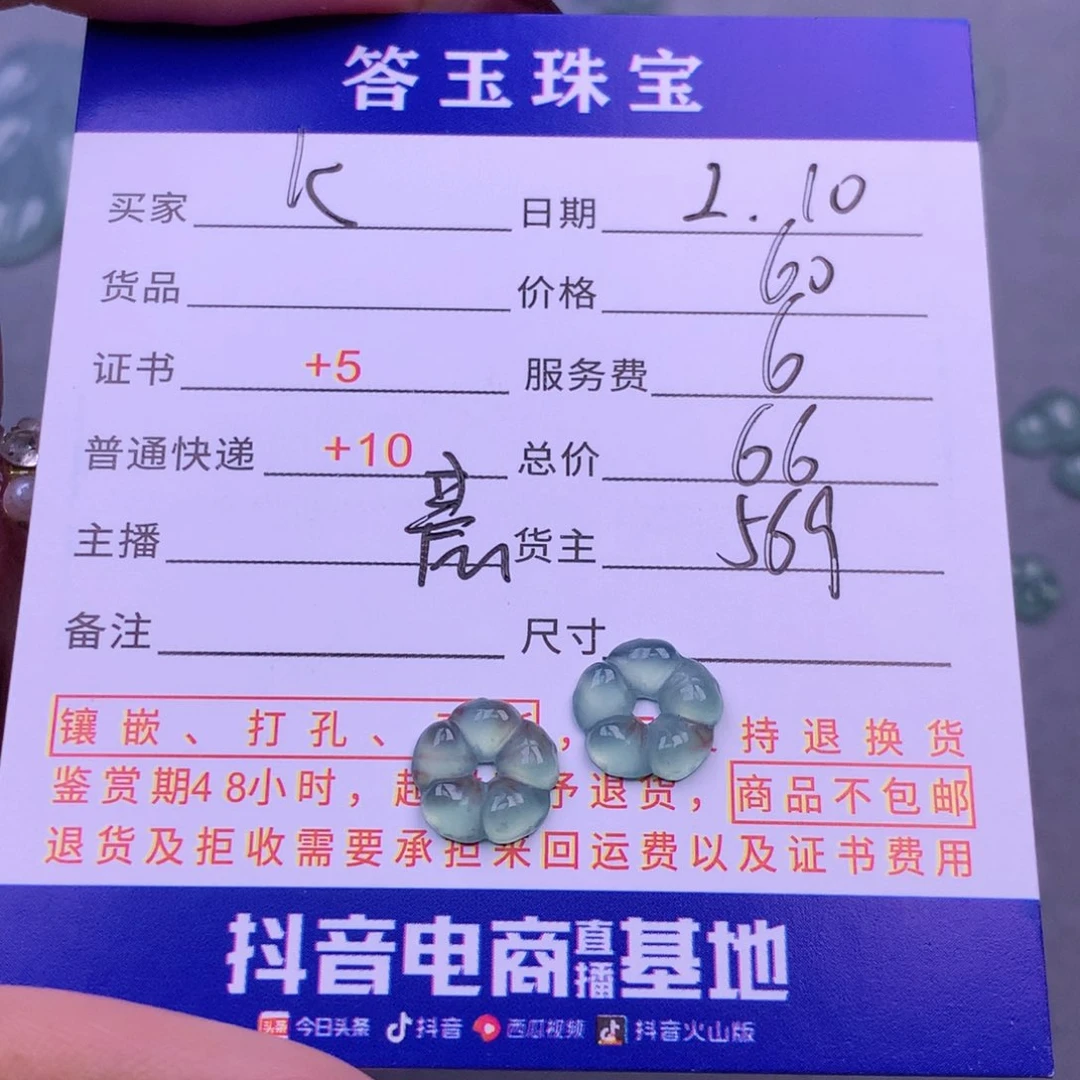 答玉珠宝
买家 K 日期 2.10
货品 价格 60
证书 +5 服务费 6
普通快递 +10 总价 66
主播 货主 569
备注 尺寸
镶嵌、打孔、 ， 持退换货
鉴赏期48小时，超 予退货，商品不包邮
退货及拒收需要承担来回运费以及证书费用
抖音电商直播基地
头条 今日头条 抖音 西瓜视频 抖音火山版